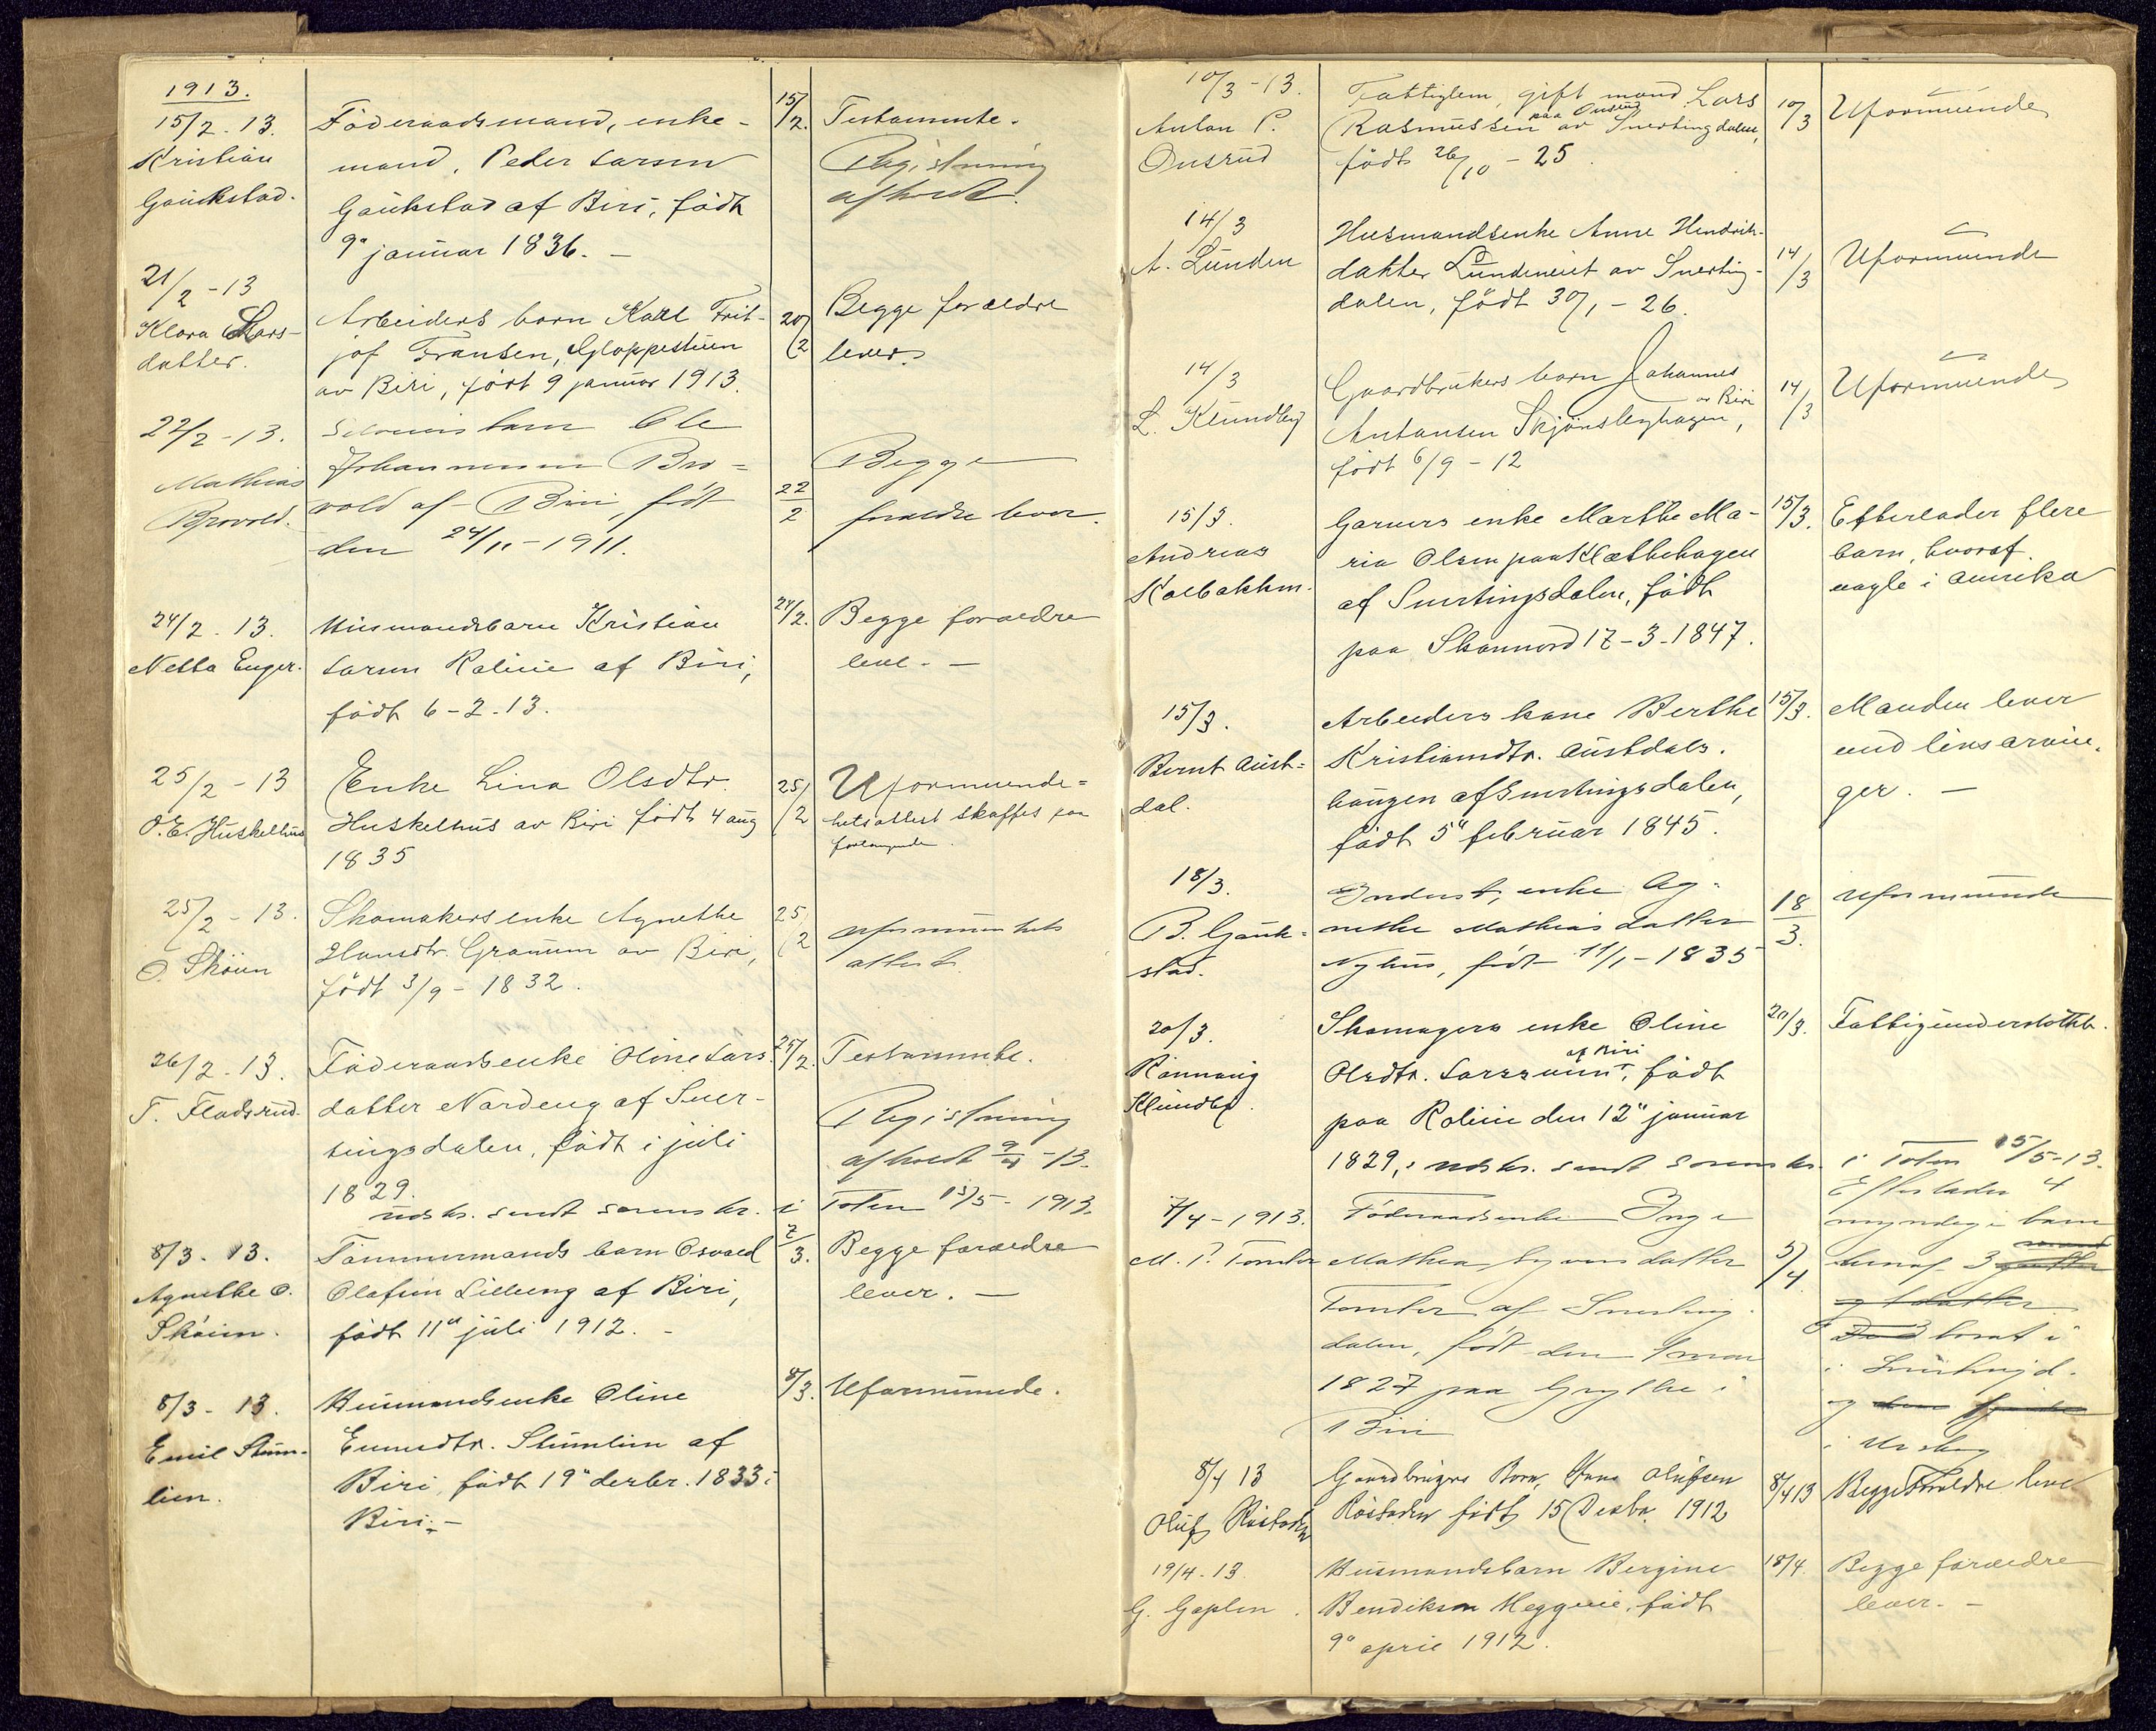 1913.
15/2. 13.
Kristian
Gaukstad.
Föderaadsmand, enke-
mand, Peder Larsen
Gaukstad af Biri, födt
9" januar 1836. –
15/2.
Testamente.
Registrering
afholdt.
21/2 - 13
Klara Lars-
datter.
Arbeiders barn Karl Frit-
jof Fransen, Gloppestuen
av Biri, födt 9 januar 1913.
20/2
Begge forældre
lever.
22/2 - 13.
Mathias
Brovold.
barn Ole
Johannesen Bro=
vold af Biri, födt
den 24/11 - 1911.
22/2
Begge
foreldre lever.
24/2. 13.
Netta Enger.
Husmandsbarn Kristian
Larsen af Biri,
födt 6-2-13.
24/2.
Begge forældre
leve. –
25/2 - 13
O. E. Huskelhus
Enke Lina Olsdtr.
Huskelhus av Biri födt 4 aug
1835
25/2
Uformuende=
hetsattest skaffes paa
forlangende.
25/2 - 13.
O. Sköien
Skomakers enke Agnethe
Hansdtr. Granum av Biri,
födt 3/9 - 1832.
25/2
attest
26/2. 13.
T. Fladsrud.
Föderaadsenke Oline Lars-
datter Nordeng af Sner-
tingsdalen, födt i juli
1829.
udskr. sendt sorenskr. i Toten 15/5 - 1913.
25/2.
Testamente.
Registrering
afholdt -13.
8/3. 13.
Agnethe O.
Sköien.
Tömmermands barn Osvald
Olafsen Lilleeng af Biri,
födt 11" juli 1912. –
7/3.
Begge forældre
lever. –
8/3 - 13.
Emil Stum-
lien.
Husmandsenke Oline
Evensdtr. Stumlien af
Biri, födt 19" decbr. 1833 i
Biri. –
8/3.
Uformuende.
10/3 - 13.
Anton P.
Onsrud
Fattiglem, gift mand Lars
paa Onsrud
Rasmussen av Snertingdalen,
födt 26/10 - 25.
10/3
Uformuende
14/3
A. Lunden
Husmandsenke Anne Hendrik-
datter Lundeneiet av Snerting-
dalen, födt 30/1 - 26.
14/3
Uformuende
14/3
L. Klundby
Gaardbrukers barn Johannes
av Biri
Antonsen Skjönsbyhagen,
födt 6/9 - 12
14/3
Uformuende
15/3.
Andreas
Kolbakken.
Garvers enke Marthe Ma-
ria Olsen paa Klæthehagen
af Snertingsdalen, födt
paa Skonnord 17-3-1847.
15/3.
Efterlader flere
barn, hvoraf
nogle i Amerika
15/3.
Bernt Aust=
dal.
Arbeiders kone Berthe
Kristiansdtr. Austdals-
haugen af Snertingsdalen,
födt 5" februar 1845.
15/3.
Manden lever
und livsarvin.
ger. –
18/3.
B. Gauk=
stad.
Inderst, enke Ag-
nethe Mathiasdatter
Nyhus, födt 11/1 - 1835
18/3.
uformuende
20/3.
Rönnaug
Klundby.
Skomagers enke Oline
af Biri
Olsdtr. födt
paa den 12" januar
1829. udskr. sendt sorenskr. i Toten 15/5-13.
20/3.
Fattigunderstöttet.
7/4 - 1913.
M. P. Tomter
Föderaadsenke Inge
Mathea Syversdatter
Tomter af Snerting-
dalen, födt den
1827 paa Grythe i
Biri
5/4
Efterlader 4
myndige barn
hvoraf 3
bosat i
i
og
i
8/4 13
Oluf Röstaden
Gaardbrugers Barn, Jens Olufsen
Röstaden födt 15 Desbr. 1912
8/4 13
Begge Foreldre leve
19/4 - 13
G. Gaplen.
Husmandsbarn Bergine
Bendiksen födt
9" april 1912.
18/4.
Begge forældre
lever. –